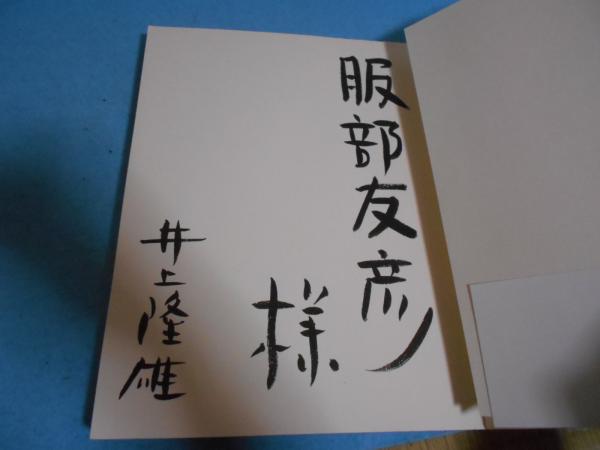 服部友彦
様
井上隆雄